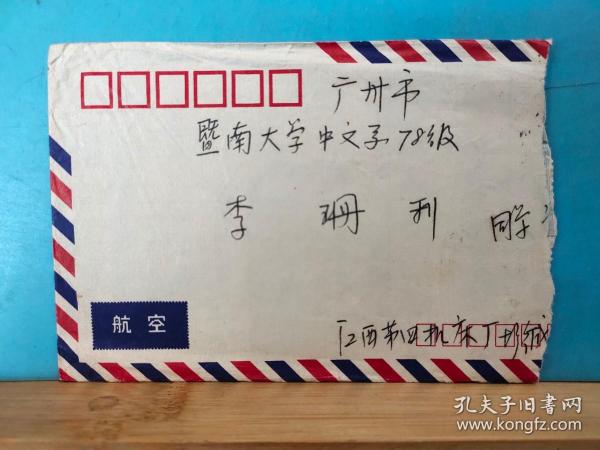 广州市
暨南大学中文系78级
李珊利 同学
江西第四机床厂
航空
孔夫子旧书网
www.kongfz.com